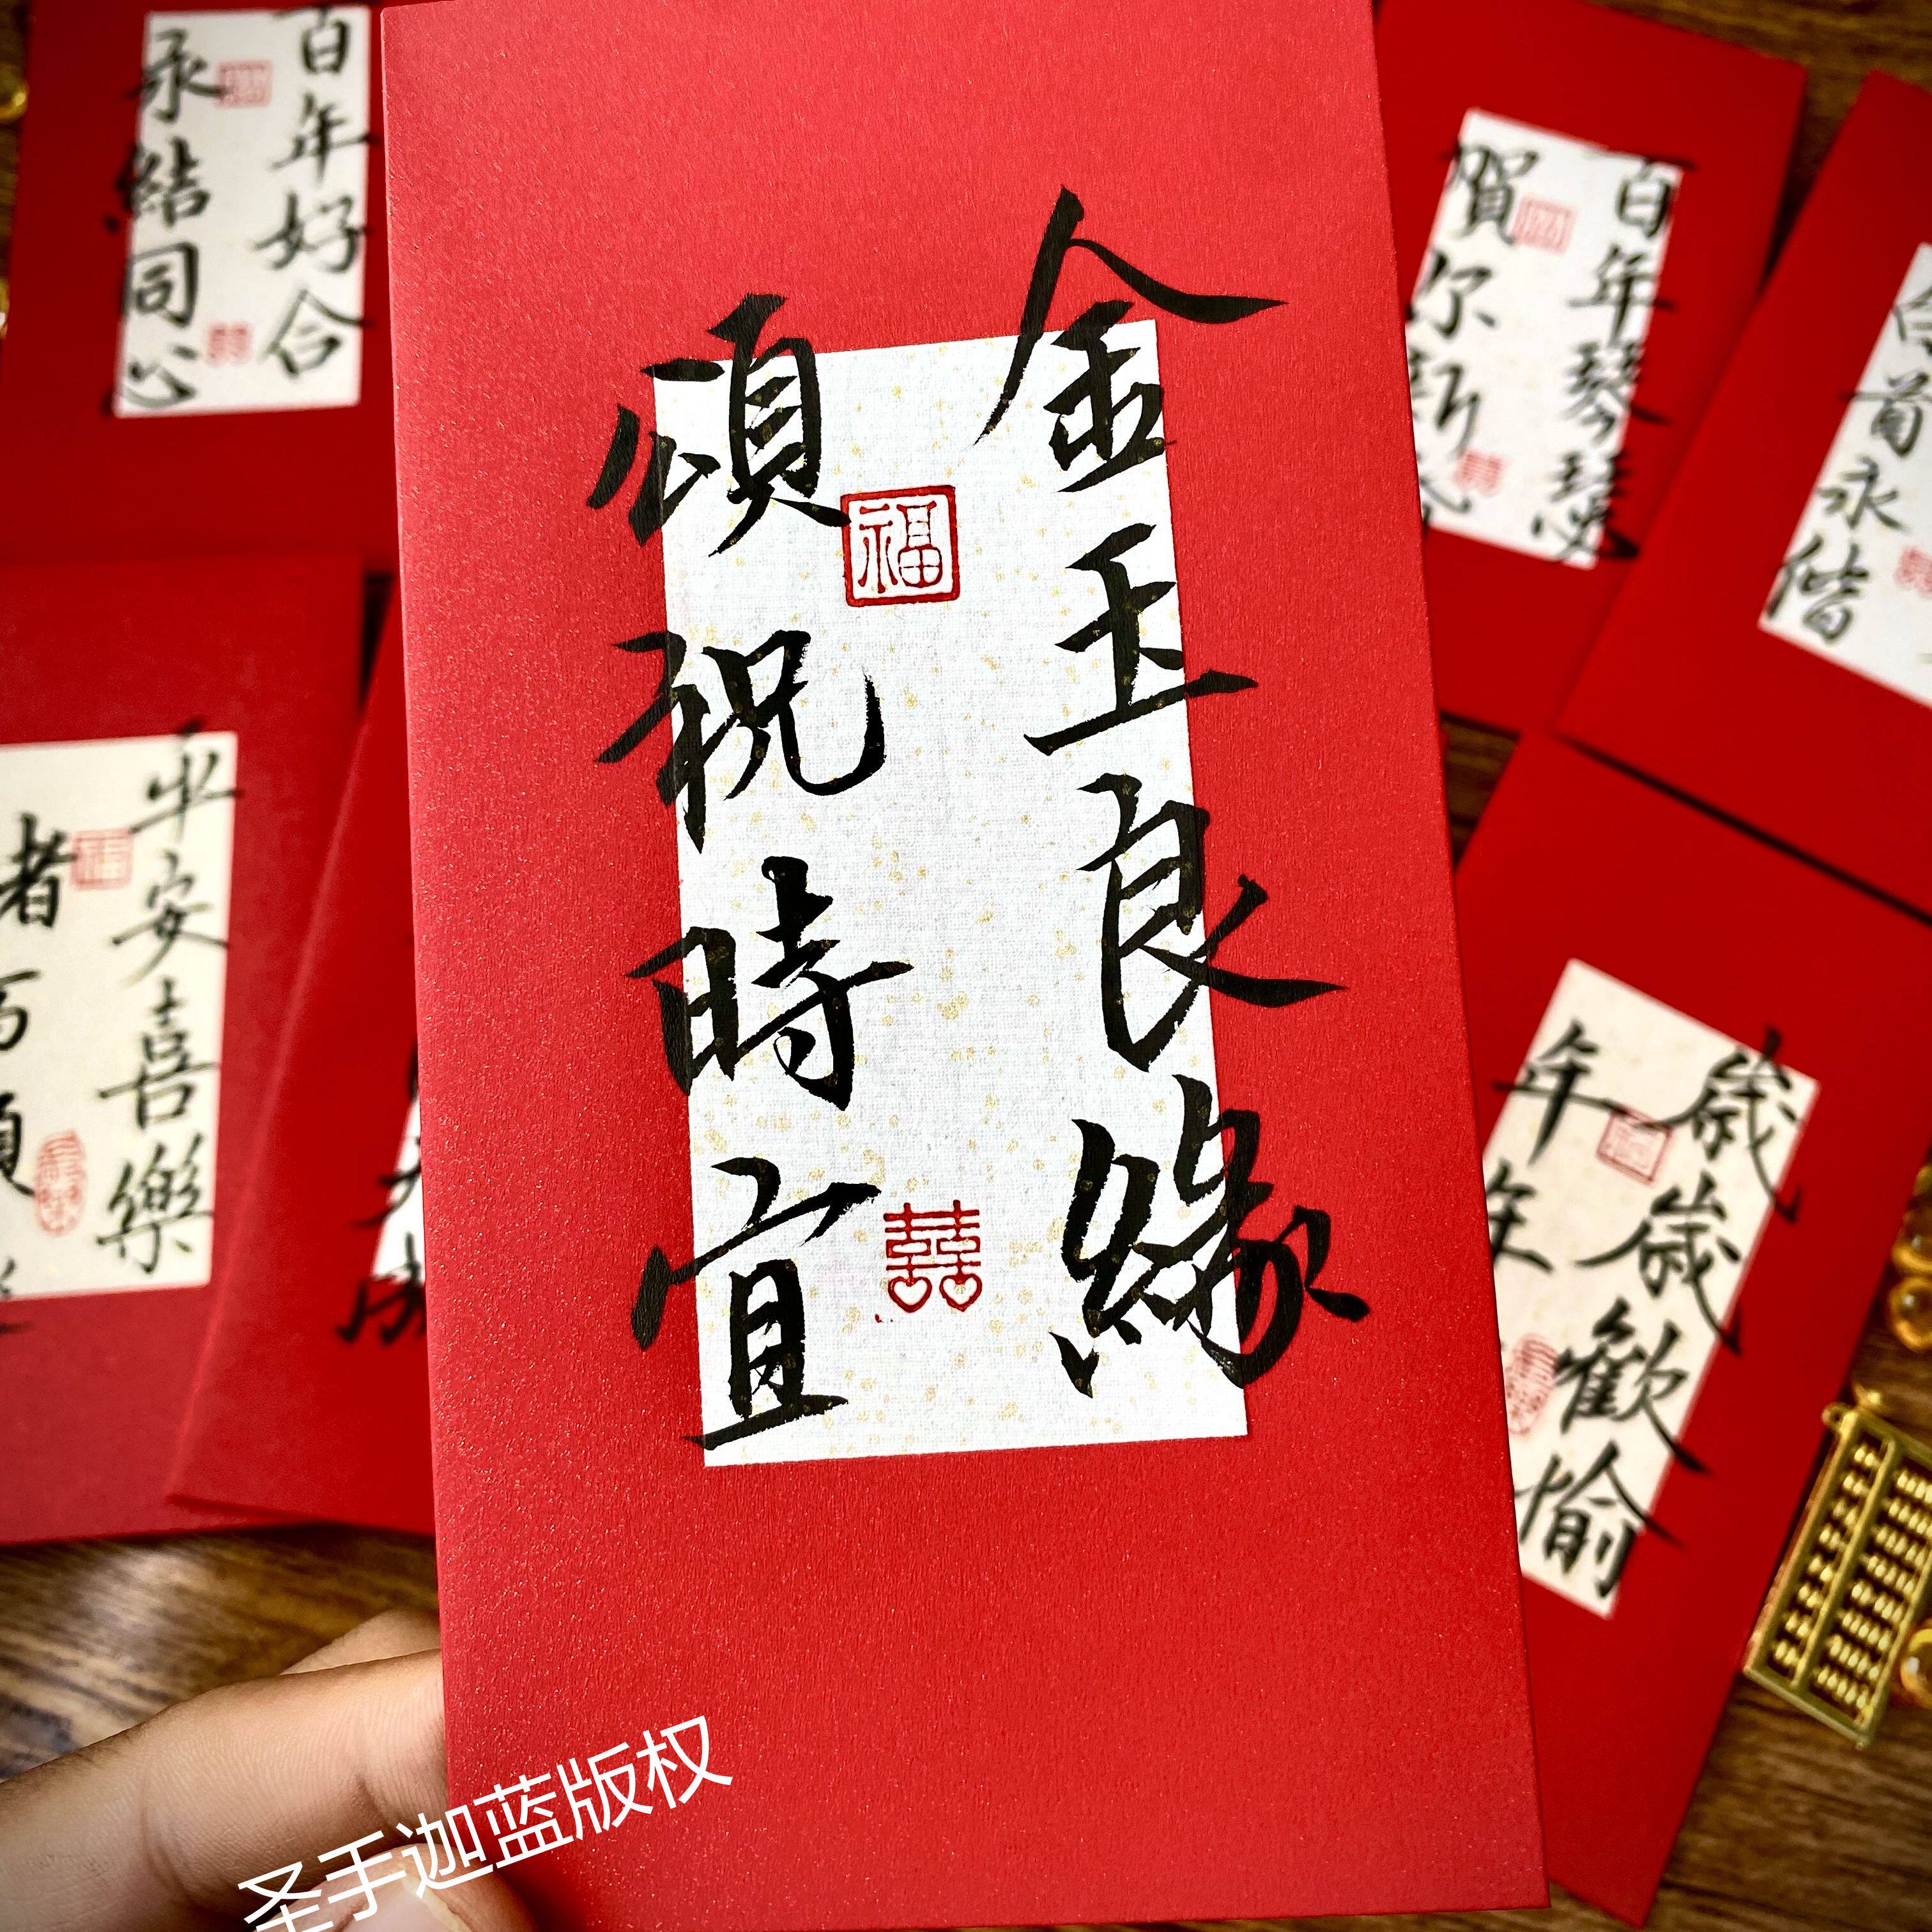 金玉良緣
頌祝時宜
福
囍
百年好合
永結同心
百年琴瑟
賀尔新
白首永偕
平安喜樂
福
歲歲歡愉
年年
圣手迦蓝版权